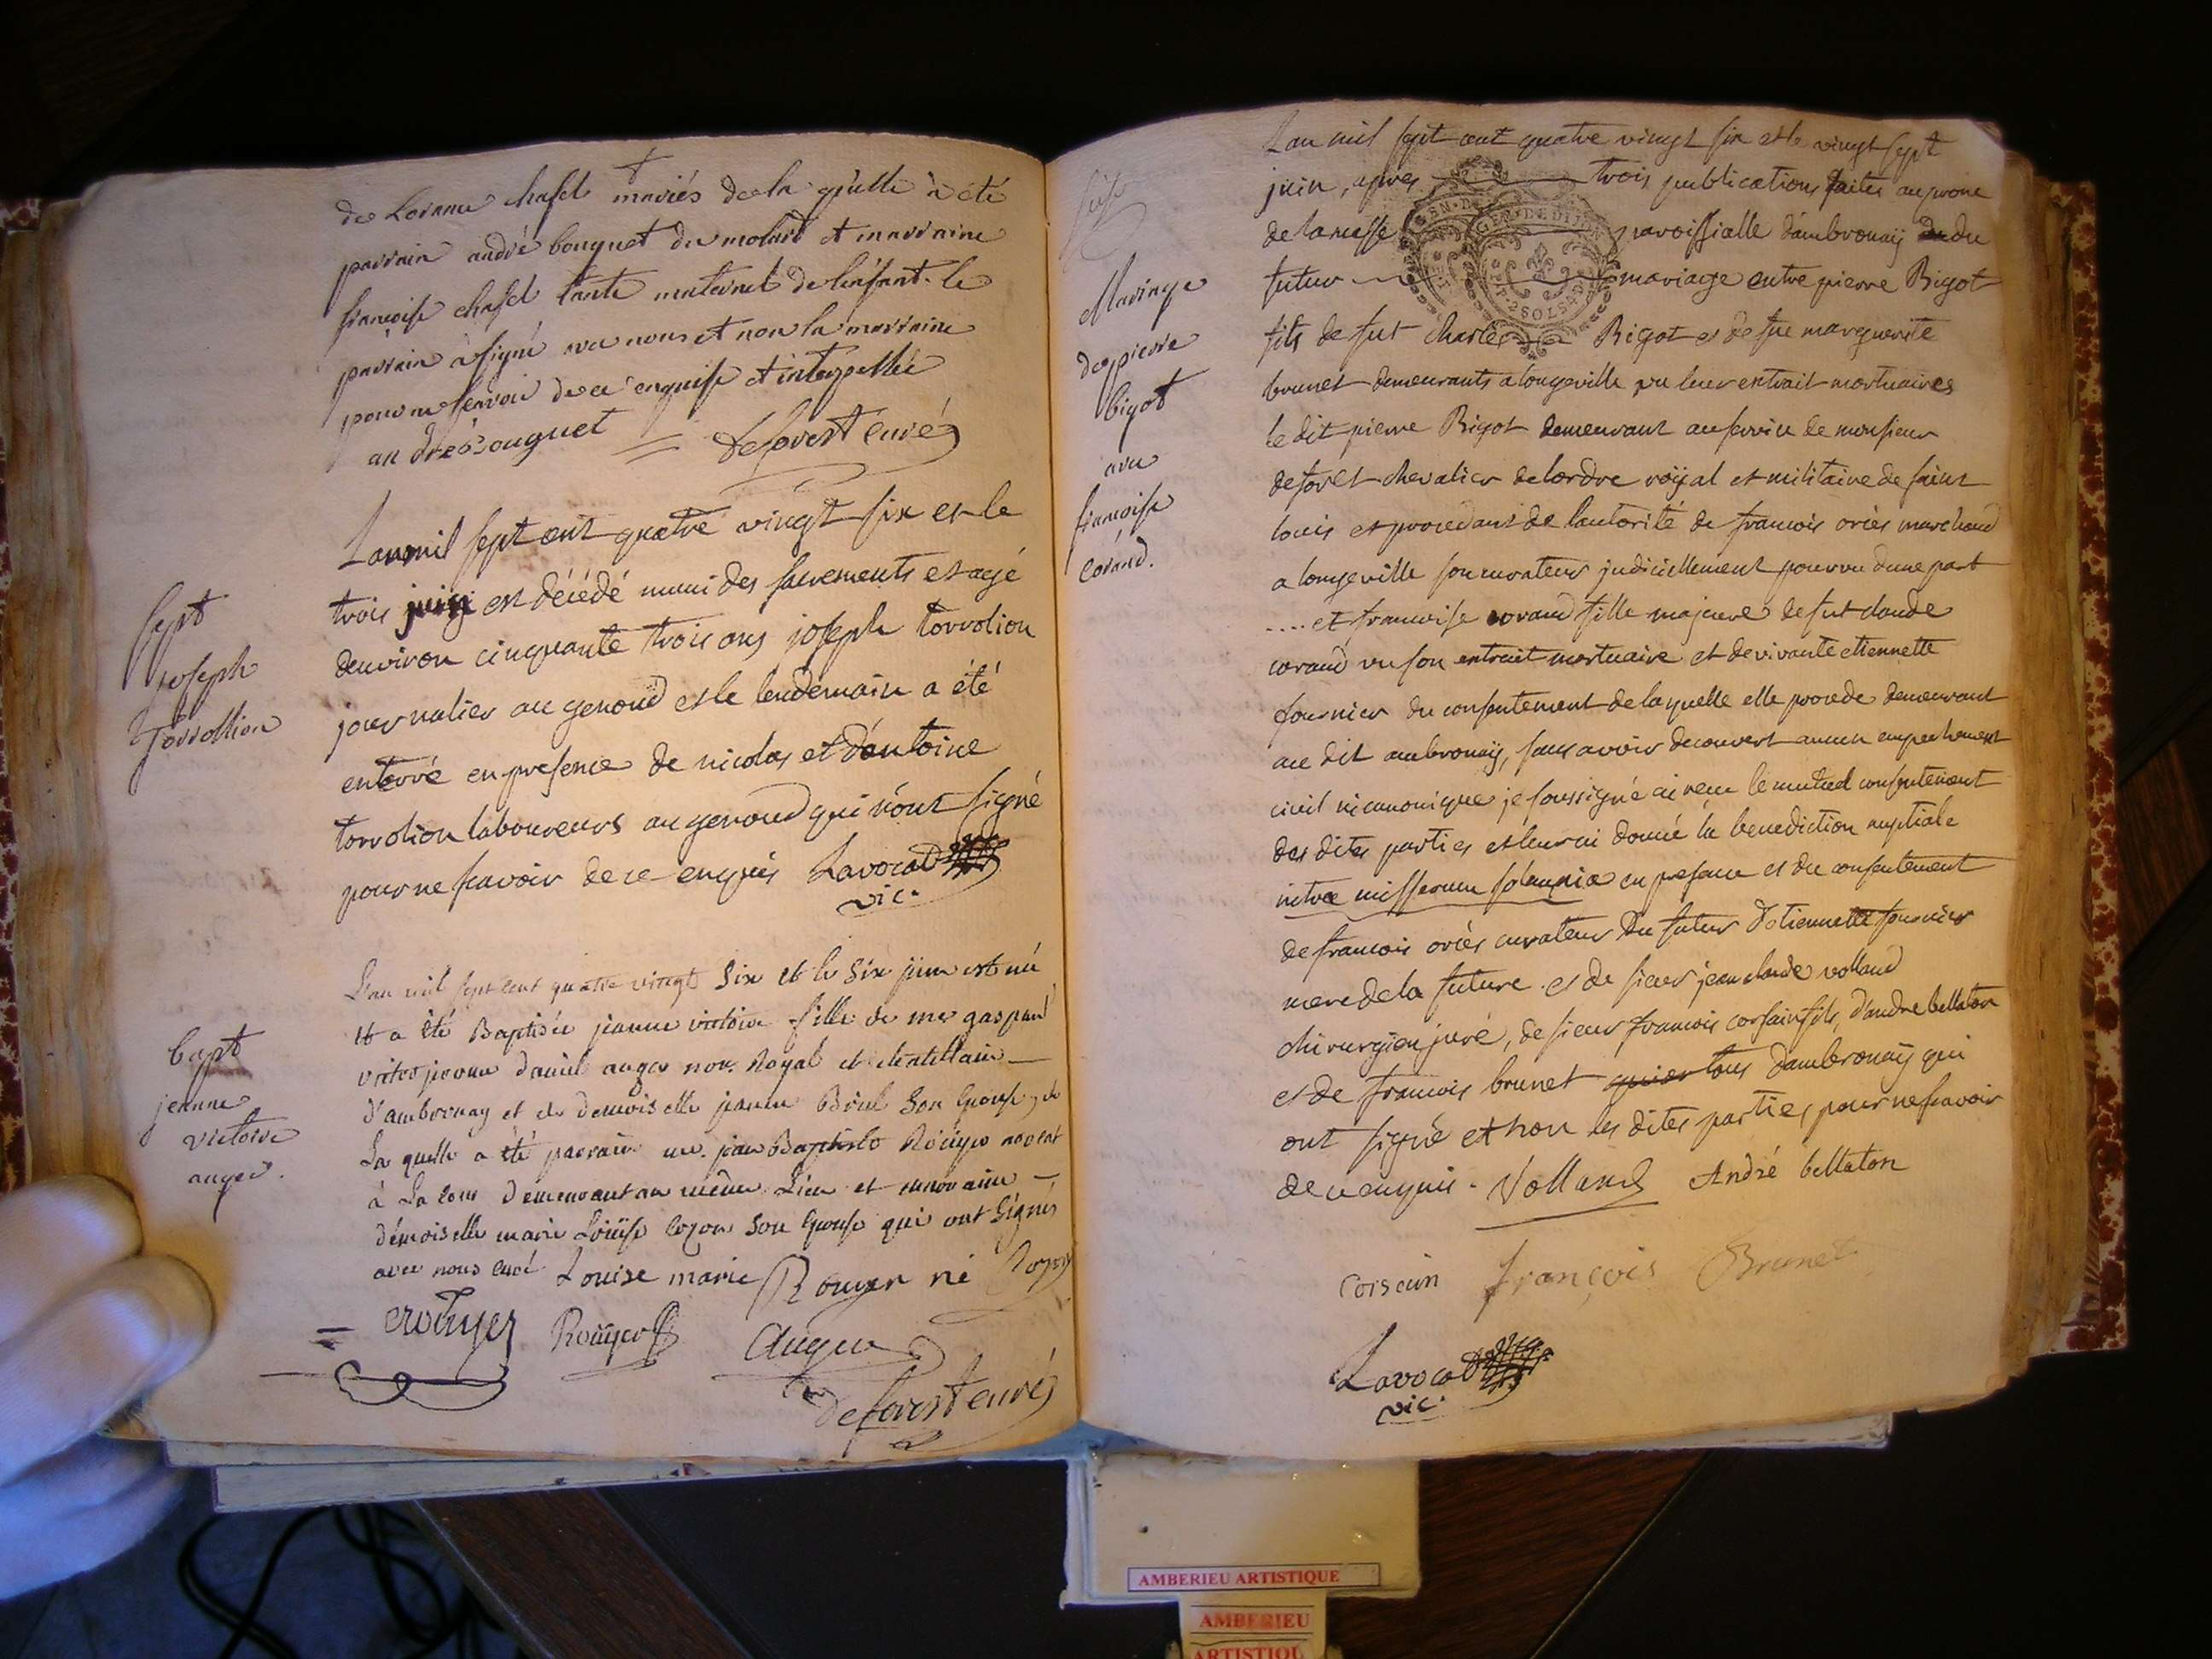 de chasel mariés de la a été
parrain andré bouquet du molard et marraine
francoise chasel tante maternel de l'enfant. le
parrain à signé avec nous et non la marraine
pour ne scavoir de ce enquise et interpellée
andré bouquet = deforest curé
sept
joseph
torrollion
Lan mil sept cent quatre vingt six et le
trois juin est décédé muni des sacrements et agé
denviron cinquante trois ans joseph torrolion
journalier au genoud et le lendemain a été
enterré en presence de nicolas et d'antoine
torrolion laboureurs au genoud qui n'ont signé
pour ne scavoir de ce enquis Lavocat
vic.
bapt
jeanne
victoire
auger.
L'an mil sept cent quatre vingt six et le six juin est né
et a été Baptisée jeanne victoire fille de me gaspard
victor daniel auger not. Royal et chatellain
d'ambronay et de demoiselle jeanne son épouse, de
La quelle a été parrain me. jean Baptiste Roüyer avocat
à La cour demeurant au même Lieu et marraine
démoiselle marie Loüise son épouse qui ont signés
avec nous curé Louise marie Rouyer né
= Roüyer Auger
deforest curé
Mariage
de pierre
bigot
avec
francoise
corand.
Lan mil sept cent quatre vingt six et le vingt sept
juin, apres trois publications faites au prone
de la messe paroissialle d'ambronaÿ du
futur mariage entre pierre Bigot
fils de fut charles Bigot et de fue marguerite
brunet demeurants a longeville vu leur extrait mortuaires
le dit pierre Bigot demeurant au service de monsieur
deforest chevalier de lordre roÿal et militaire de saint
louis et procedant de lautorité de francois oriés marchand
a longeville son curateur judiciellement pourvu dune part
.... et francoise corand fille majeure de fut claude
corand vu son extrait mortuaire et de vivante etiennette
fournier du consentement de laquelle elle procede demeurant
au dit ambronaÿ, sans avoir decouvert aucun empechement
civil ni canonique je soussigné ai recu le mutuel consentement
des dites parties et leur ai donné la benediction nuptiale
intra missarum solemnia en presence et du consentement
de francois oriés curateur du futur d'etiennette fournier
mere de la future. et de sieur jean claude volland
chirurgien juré, de sieur francois corsain fils, d'andre bellaton
et de francois brunet tous d'ambronaÿ qui
ont signé et non les dites parties pour ne scavoir
de ce enquis. Volland André bellaton
corsain françois Brunet
Lavocat
vic.
AMBERIEU ARTISTIQUE
AMBERIEU
ARTISTIQU